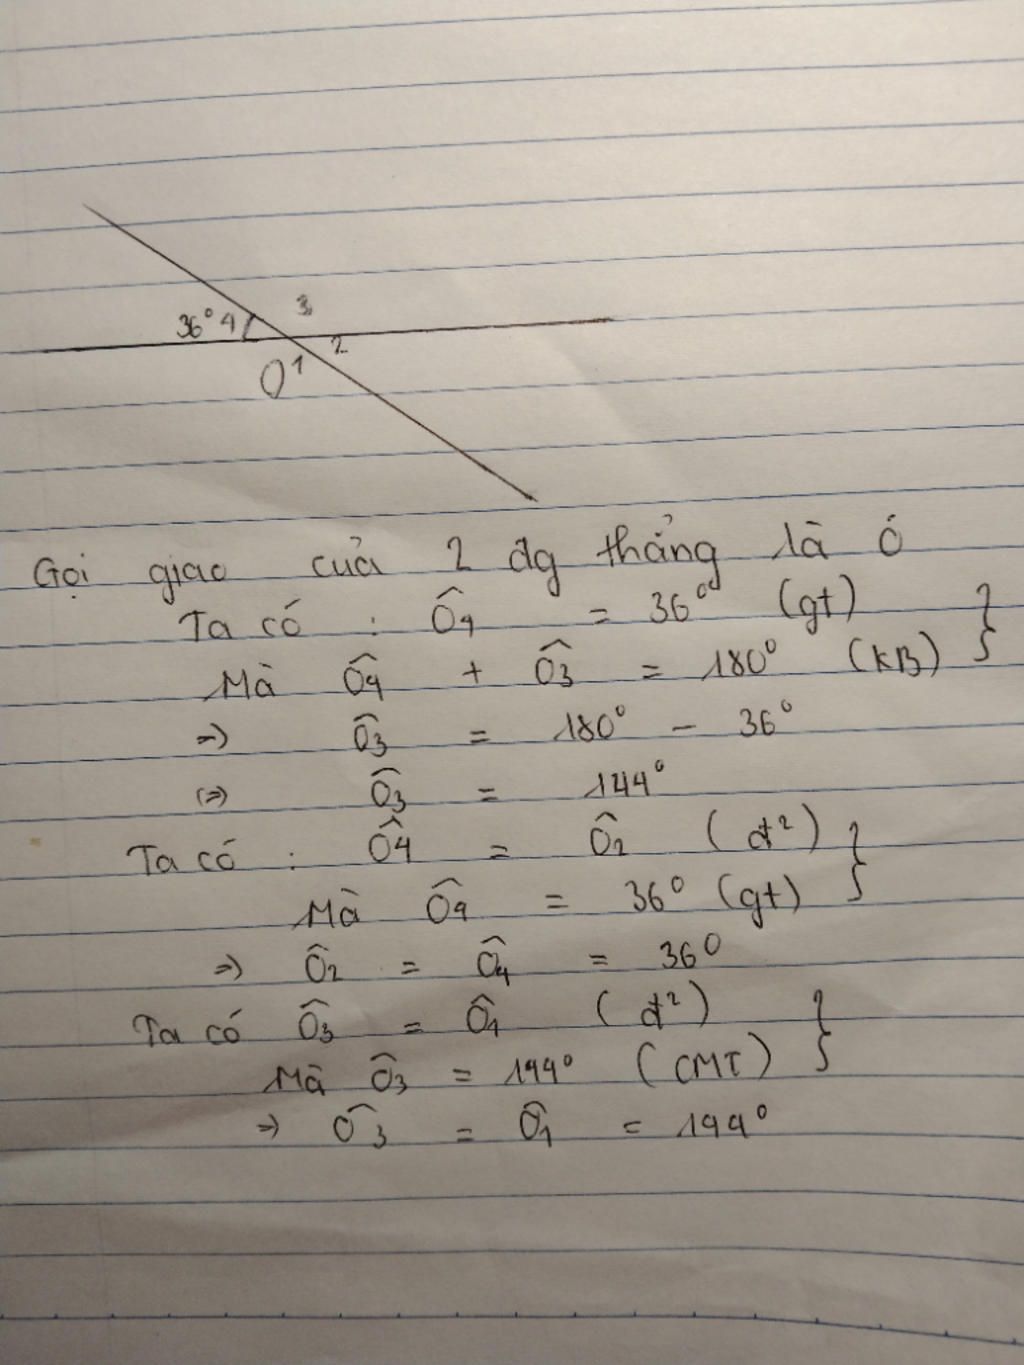 36° 4
3
2
O 1
Gọi giao của 2 đg thẳng là O
Ta có : Ô4 = 36° (gt) }
Mà Ô4 + Ô3 = 180° (KB) }
=> Ô3 = 180° - 36°
(=>) Ô3 = 144°
Ta có : Ô4 = Ô2 (đ²) }
Mà Ô4 = 36° (gt) }
=> Ô2 = Ô4 = 36°
Ta có Ô3 = Ô1 (đ²) }
Mà Ô3 = 144° (CMT) }
=> Ô3 = Ô1 = 144°